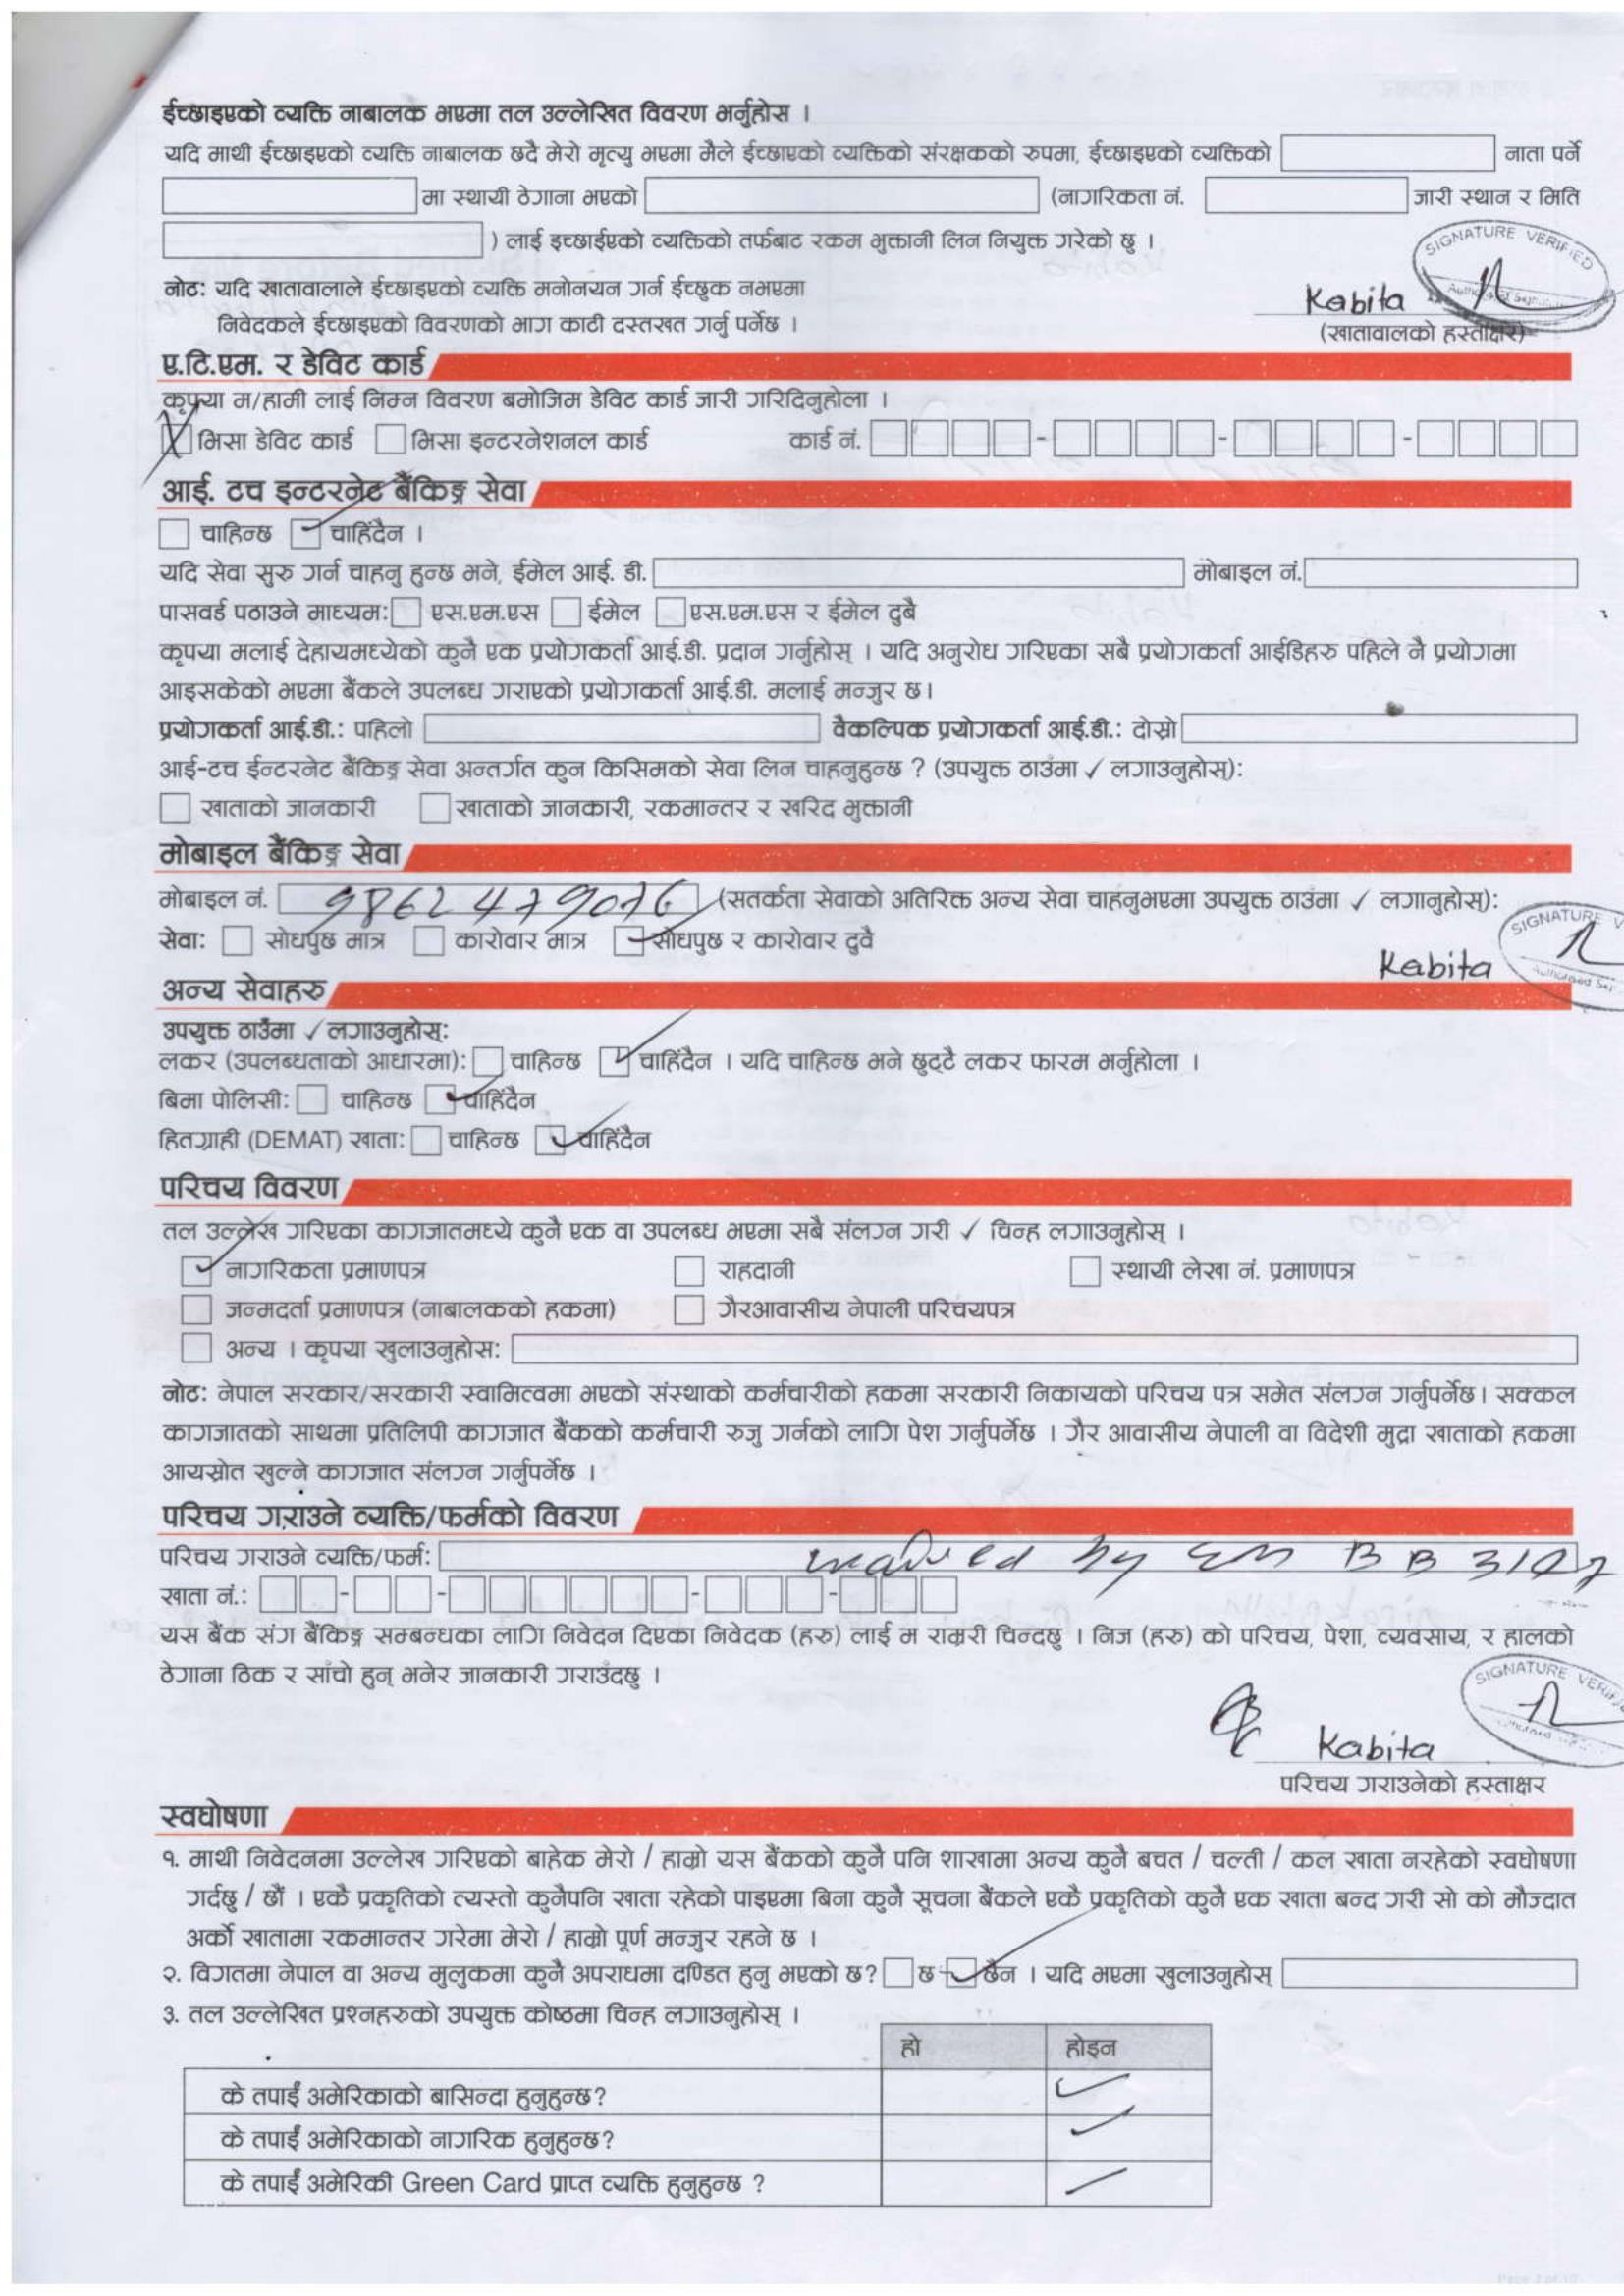 ईच्छाइएको व्यक्ति नाबालक भएमा तल उल्लेखित विवरण भर्नुहोस ।
यदि माथी ईच्छाइएको व्यक्ति नाबालक छदै मेरो मृत्यु भएमा मैले ईच्छाएको व्यक्तिको संरक्षकको रुपमा, ईच्छाइएको व्यक्तिको नाता पर्ने
मा स्थायी ठेगाना भएको (नागरिकता नं. जारी स्थान र मिति
) लाई इच्छाईएको व्यक्तिको तर्फबाट रकम भुक्तानी लिन नियुक्त गरेको छु ।
SIGNATURE VERIFIED
नोट: यदि खातावालाले ईच्छाइएको व्यक्ति मनोनयन गर्न ईच्छुक नभएमा
Kabita
निवेदकले ईच्छाइएको विवरणको भाग काटी दस्तखत गर्नु पर्नेछ ।
(खातावालको हस्ताक्षर)
ए.टि.एम. र डेविट कार्ड
कृपया म/हामी लाई निम्न विवरण बमोजिम डेविट कार्ड जारी गरिदिनुहोला ।
भिसा डेविट कार्ड भिसा इन्टरनेशनल कार्ड कार्ड नं. - - -
आई. टच इन्टरनेट बैंकिङ्ग सेवा
चाहिन्छ चाहिंदैन ।
यदि सेवा सुरु गर्न चाहनु हुन्छ भने, ईमेल आई. डी. मोबाइल नं.
पासवर्ड पठाउने माध्यम: एस.एम.एस ईमेल एस.एम.एस र ईमेल दुबै
कृपया मलाई देहायमध्येको कुनै एक प्रयोगकर्ता आई.डी. प्रदान गर्नुहोस् । यदि अनुरोध गरिएका सबै प्रयोगकर्ता आईडिहरु पहिले नै प्रयोगमा
आइसकेको भएमा बैंकले उपलब्ध गराएको प्रयोगकर्ता आई.डी. मलाई मन्जुर छ।
प्रयोगकर्ता आई.डी.: पहिलो वैकल्पिक प्रयोगकर्ता आई.डी.: दोस्रो
आई-टच ईन्टरनेट बैंकिङ्ग सेवा अन्तर्गत कुन किसिमको सेवा लिन चाहनुहुन्छ ? (उपयुक्त ठाउँमा ✓ लगाउनुहोस्):
खाताको जानकारी खाताको जानकारी, रकमान्तर र खरिद भुक्तानी
मोबाइल बैंकिङ्ग सेवा
मोबाइल नं. 9862479076 (सतर्कता सेवाको अतिरिक्त अन्य सेवा चाहनुभएमा उपयुक्त ठाउँमा ✓ लगानुहोस्):
सेवा: सोधपुछ मात्र कारोवार मात्र सोधपुछ र कारोवार दुवै
SIGNATURE V
Kabita
अन्य सेवाहरु
उपयुक्त ठाउँमा ✓ लगाउनुहोस्:
लकर (उपलब्धताको आधारमा): चाहिन्छ चाहिंदैन । यदि चाहिन्छ भने छुट्टै लकर फारम भर्नुहोला ।
बिमा पोलिसी: चाहिन्छ चाहिंदैन
हितग्राही (DEMAT) खाता: चाहिन्छ चाहिंदैन
परिचय विवरण
तल उल्लेख गरिएका कागजातमध्ये कुनै एक वा उपलब्ध भएमा सबै संलग्न गरी ✓ चिन्ह लगाउनुहोस् ।
नागरिकता प्रमाणपत्र राहदानी स्थायी लेखा नं. प्रमाणपत्र
जन्मदर्ता प्रमाणपत्र (नाबालकको हकमा) गैरआवासीय नेपाली परिचयपत्र
अन्य । कृपया खुलाउनुहोस:
नोट: नेपाल सरकार/सरकारी स्वामित्वमा भएको संस्थाको कर्मचारीको हकमा सरकारी निकायको परिचय पत्र समेत संलग्न गर्नुपर्नेछ। सक्कल
कागजातको साथमा प्रतिलिपी कागजात बैंकको कर्मचारी रुजु गर्नको लागि पेश गर्नुपर्नेछ । गैर आवासीय नेपाली वा विदेशी मुद्रा खाताको हकमा
आयस्रोत खुल्ने कागजात संलग्न गर्नुपर्नेछ ।
परिचय गराउने व्यक्ति/फर्मको विवरण
परिचय गराउने व्यक्ति/फर्म: waived by Em B B 3107
खाता नं.: - - - -
यस बैंक संग बैंकिङ्ग सम्बन्धका लागि निवेदन दिएका निवेदक (हरु) लाई म राम्ररी चिन्दछु । निज (हरु) को परिचय, पेशा, व्यवसाय, र हालको
ठेगाना ठिक र साँचो हुन् भनेर जानकारी गराउँदछु ।
SIGNATURE VERIF
Kabita
परिचय गराउनेको हस्ताक्षर
स्वघोषणा
१. माथी निवेदनमा उल्लेख गरिएको बाहेक मेरो / हाम्रो यस बैंकको कुनै पनि शाखामा अन्य कुनै बचत / चल्ती / कल खाता नरहेको स्वघोषणा
गर्दछु / छौं । एकै प्रकृतिको त्यस्तो कुनैपनि खाता रहेको पाइएमा बिना कुनै सूचना बैंकले एकै प्रकृतिको कुनै एक खाता बन्द गरी सो को मौज्दात
अर्को खातामा रकमान्तर गरेमा मेरो / हाम्रो पूर्ण मन्जुर रहने छ ।
२. विगतमा नेपाल वा अन्य मुलुकमा कुनै अपराधमा दण्डित हुनु भएको छ? छ छैन । यदि भएमा खुलाउनुहोस्
३. तल उल्लेखित प्रश्नहरुको उपयुक्त कोष्ठमा चिन्ह लगाउनुहोस् ।
हो होइन
के तपाईं अमेरिकाको बासिन्दा हुनुहुन्छ?
के तपाईं अमेरिकाको नागरिक हुनुहुन्छ?
के तपाईं अमेरिकी Green Card प्राप्त व्यक्ति हुनुहुन्छ ?